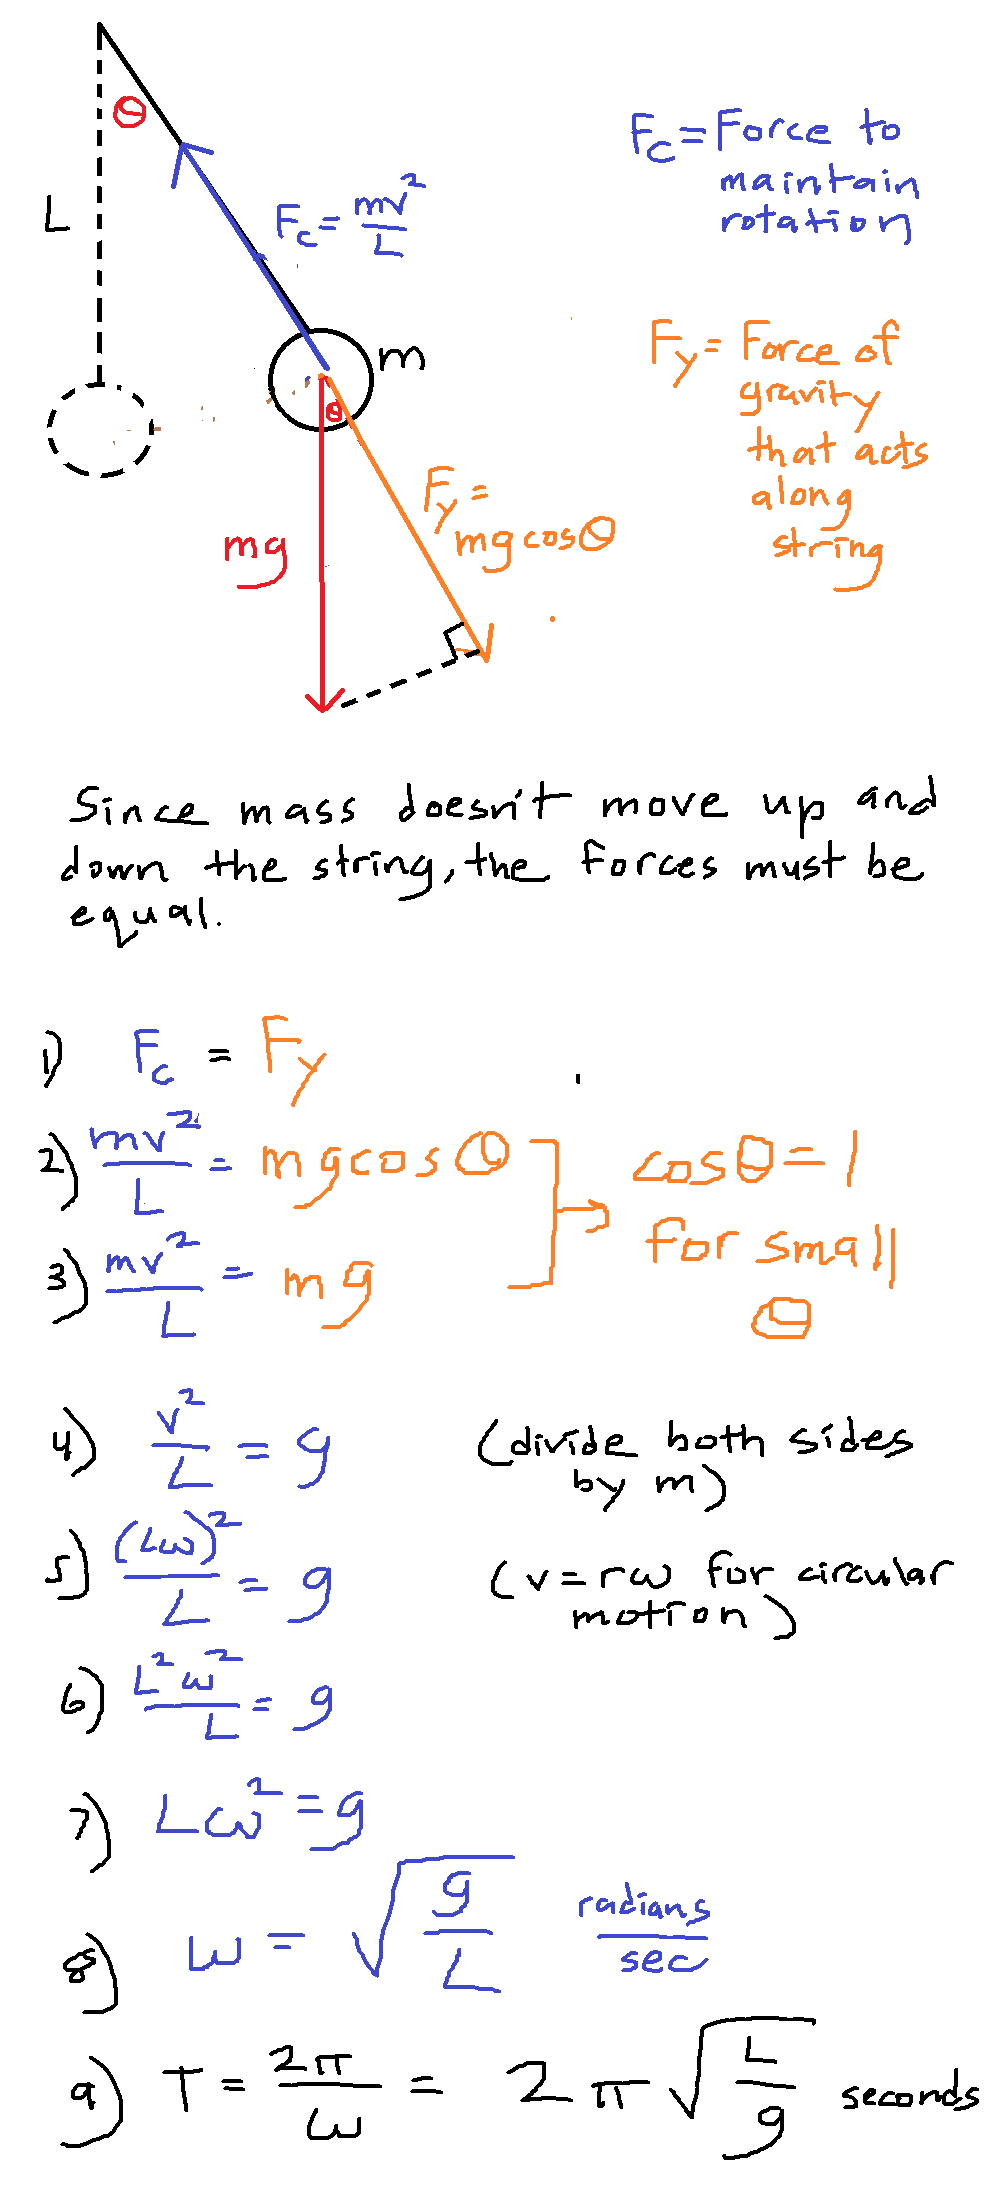 θ
L
F_c = mv²/L
m
θ
mg
F_y =
mg cosθ
F_c = Force to
maintain
rotation
F_y = Force of
gravity
that acts
along
string
Since mass doesn't move up and
down the string, the forces must be
equal.
1) F_c = F_y
2) mv²/L = mg cosθ
3) mv²/L = mg
cosθ = 1
for small
θ
4) v²/L = g (divide both sides
by m)
5) (Lω)²/L = g (v = rω for circular
motion)
6) L²ω²/L = g
7) Lω² = g
8) ω = √(g/L) radians/sec
9) T = 2π/ω = 2π√(L/g) seconds